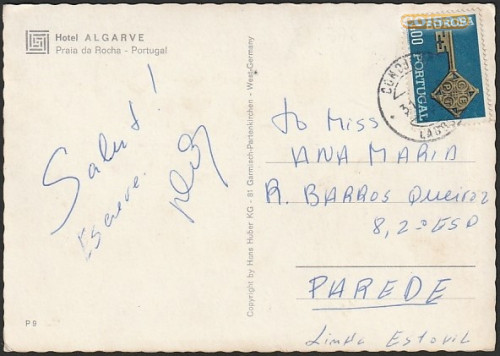 Hotel ALGARVE
Praia da Rocha - Portugal
Salut!
Escreve.
P 8
Copyright by Huna Huber KG - 81 Garmisch-Partenkirchen - West-Germany
EUROPA
PORTUGAL
CEPT
LAGOS
to Miss
ANA MARIA
R. BARROS Queiroz
8, 2º ESD
PAREDE
Linda Estoril